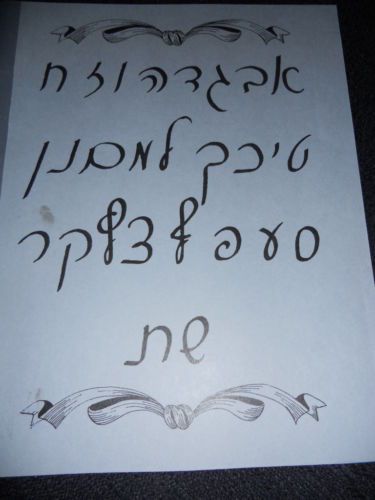 אבגדהוז ח
טיכך למםנן
סעפ ףצץקר
שת